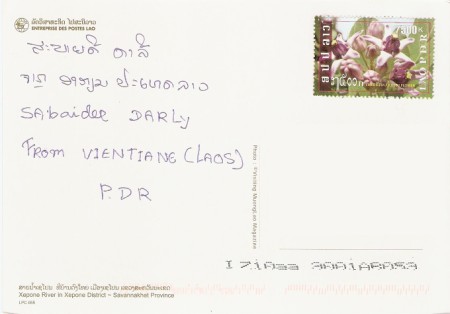 ລັດວິສາຫະກິດ ໄປສະນີລາວ
ENTERPRISE DES POSTES LAO
ສະບາຍດີ ດາລີ້
ຈາກ ວຽງຈັນ ປະເທດລາວ
SAbaidee DARLy
FROM VIENTIANE (LAOS)
P.DR
ສປປ ລາວ
LAO PDR
Photo :
Muong Lao Magazine
ສາຍນ້ຳເຊໂປນ
ເມືອງເຊໂປນ ແຂວງສະຫວັນນະເຂດ
Xepone River in Xepone District – Savannakhet Province